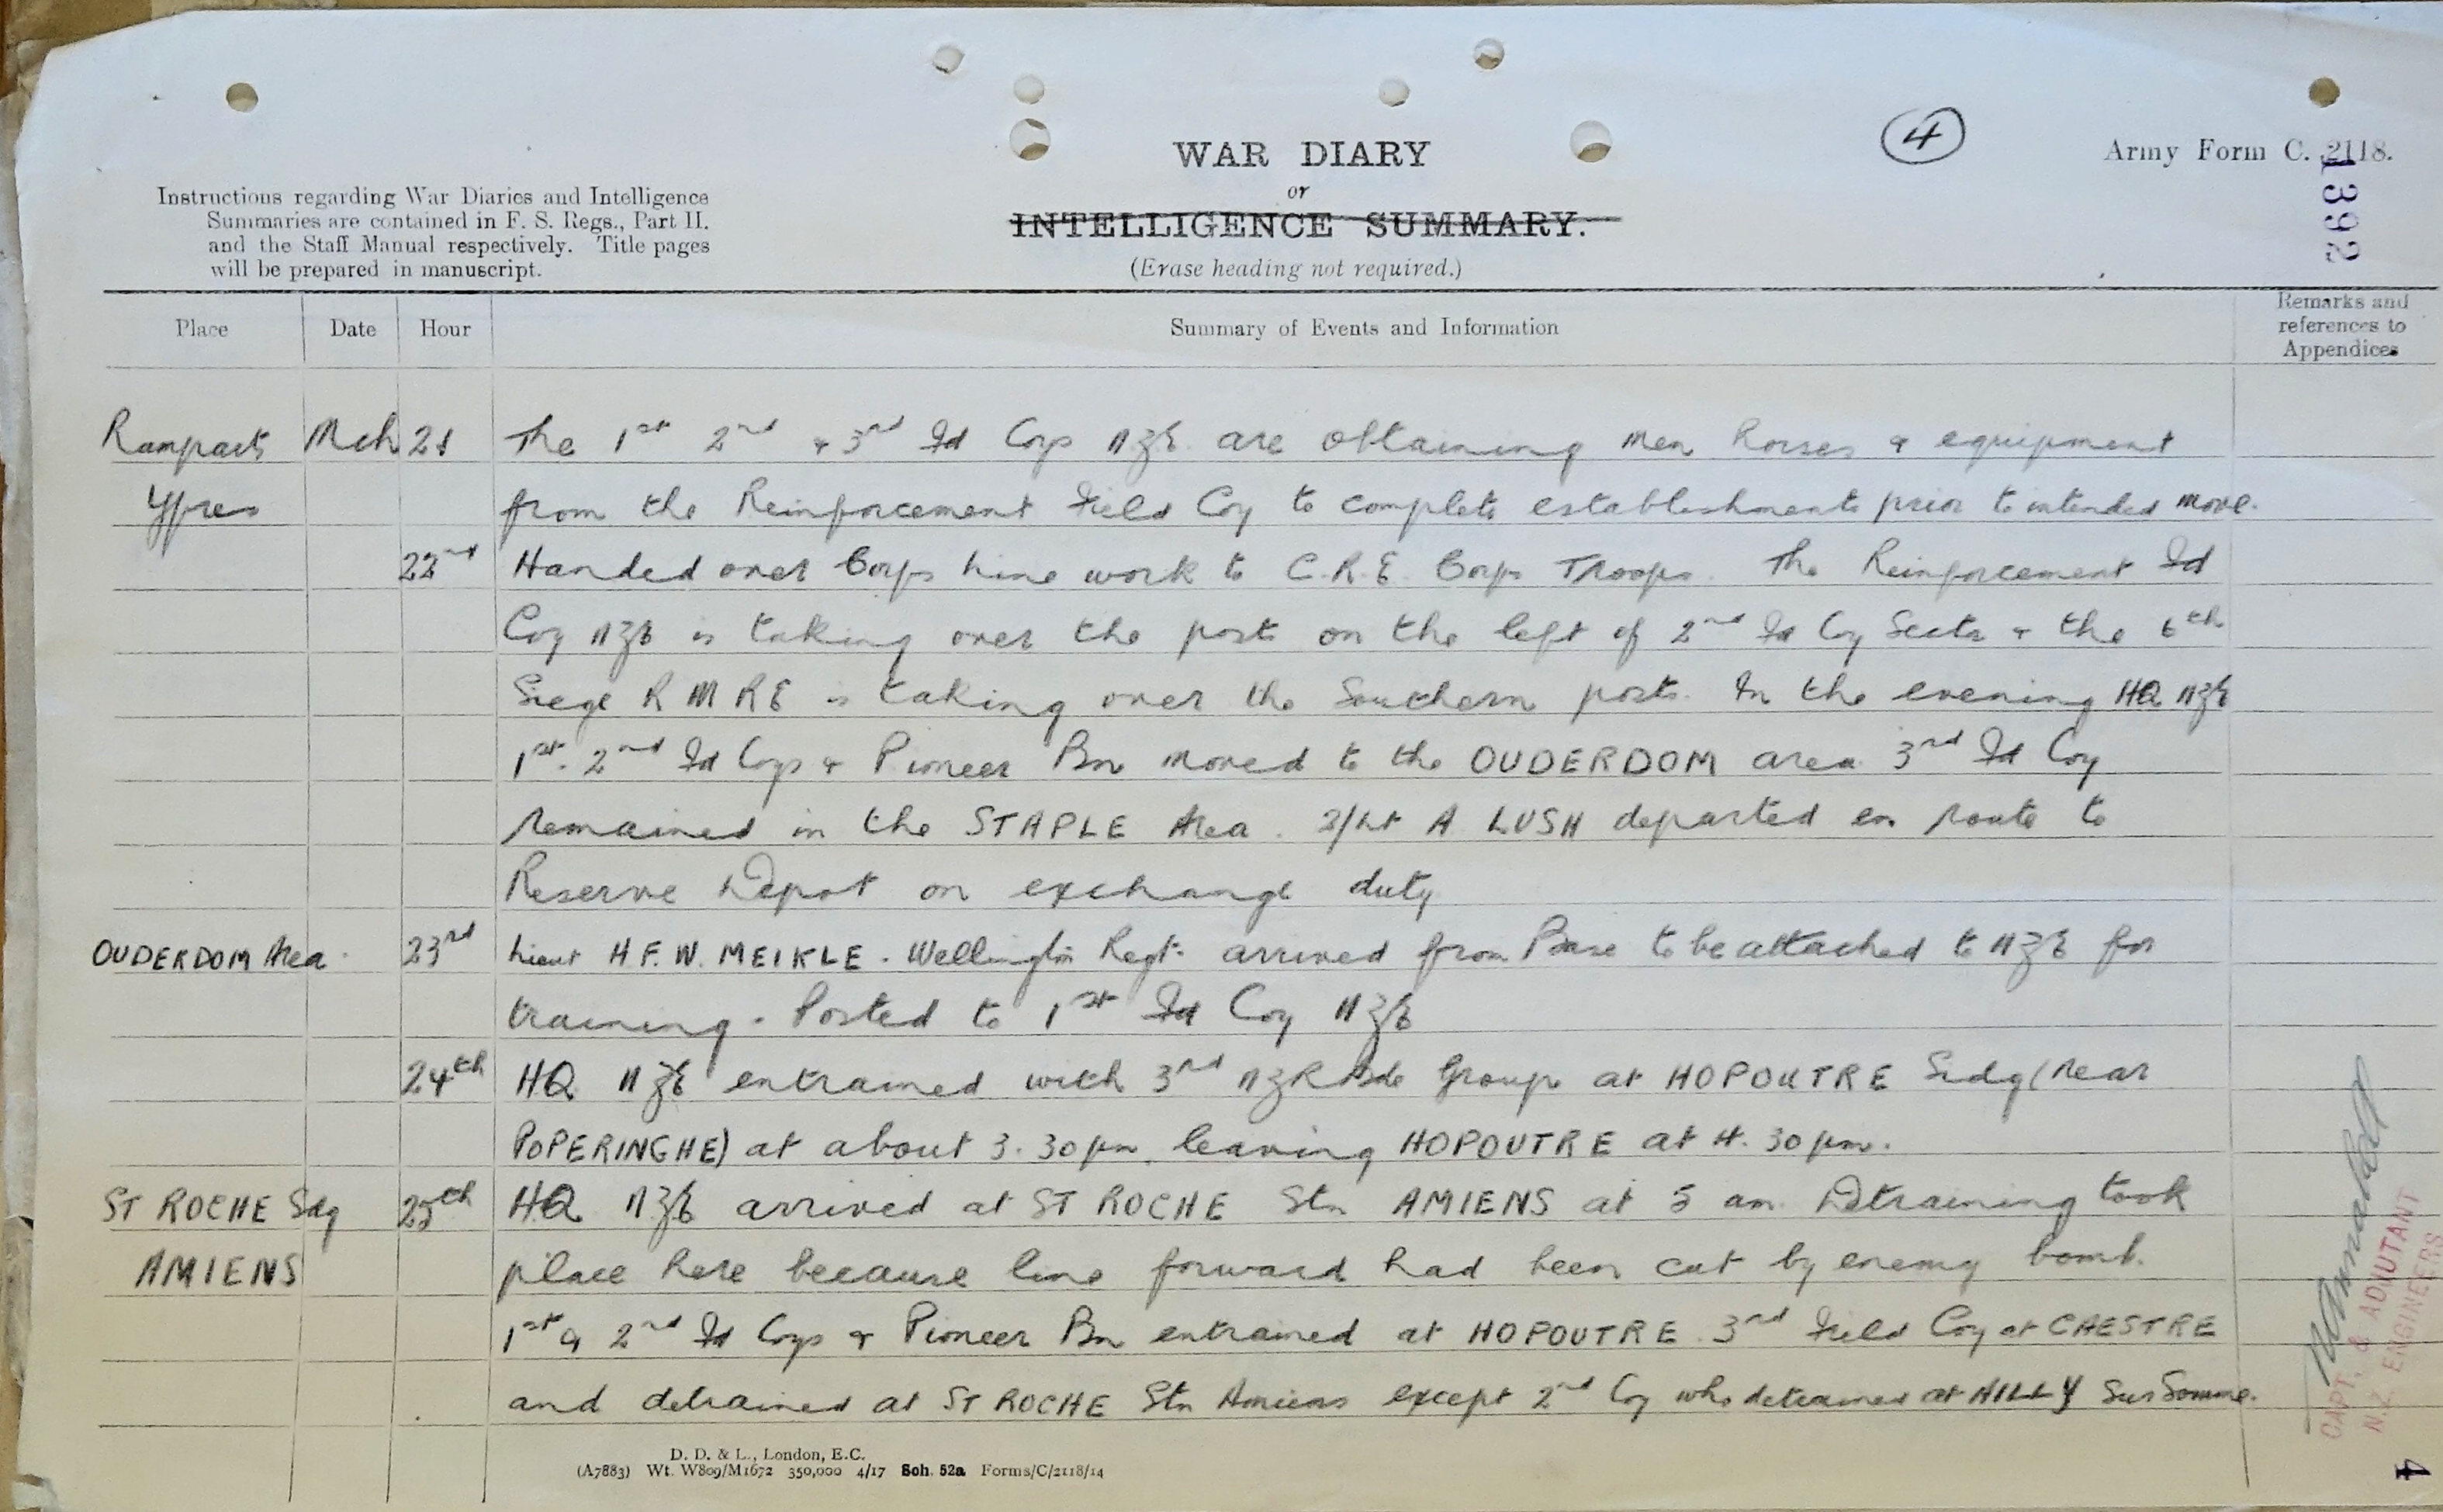 4
Army Form C. 2118.
1392
WAR DIARY
or
INTELLIGENCE SUMMARY.
(Erase heading not required.)
Instructions regarding War Diaries and Intelligence
Summaries are contained in F. S. Regs., Part II.
and the Staff Manual respectively. Title pages
will be prepared in manuscript.
Place Date Hour Summary of Events and Information Remarks and
references to
Appendices
Ramparts Mch 21 The 1st 2nd & 3rd Fd Coys NZE are obtaining men horses & equipment
Ypres from the Reinforcement Field Coy to complete establishments prior to intended move.
22nd Handed over Corps Line work to C.R.E. Corps Troops. The Reinforcement Fd
Coy NZE is taking over the posts on the left of 2nd Fd Coy Sector & the 6th
Siege R M R E is taking over the Southern posts. In the evening HQ NZE
1st. 2nd Fd Coys & Pioneer Bn moved to the OUDERDOM area 3rd Fd Coy
remained in the STAPLE Area. 2/Lt A LUSH departed en route to
Reserve Depot on exchange duty
OUDERDOM Area. 23rd Lieut H.F.W. MEIKLE. Wellington Regt. arrived from Base to be attached to NZE for
training. Posted to 1st Fd Coy NZE
24th HQ NZE entrained with 3rd NZR Bde Group at HOPOUTRE Sidg (near
POPERINGHE) at about 3.30 pm, leaving HOPOUTRE at 4.30 pm.
ST ROCHE Sdg 25th HQ NZE arrived at ST ROCHE Stn AMIENS at 5 am. Detraining took
AMIENS place here because line forward had been cut by enemy bomb.
1st & 2nd Fd Coys & Pioneer Bn entrained at HOPOUTRE. 3rd Field Coy at CAESTRE
and detrained at ST ROCHE Stn Amiens except 2nd Coy who detrained at AILLY Sur Somme.
CAPT. & ADJUTANT
N.Z. ENGINEERS
D. D. & L., London, E.C.
(A7883) Wt. W809/M1672 350,000 4/17 Sch. 52a Forms/C/2118/14
4